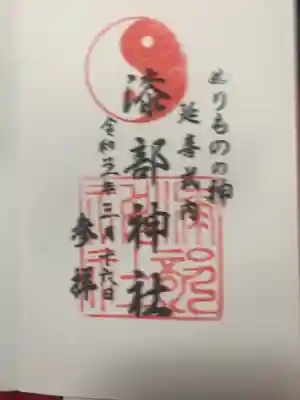 ぬりものの神
延喜式内
漆部神社
令和五年三月十六日
参拝